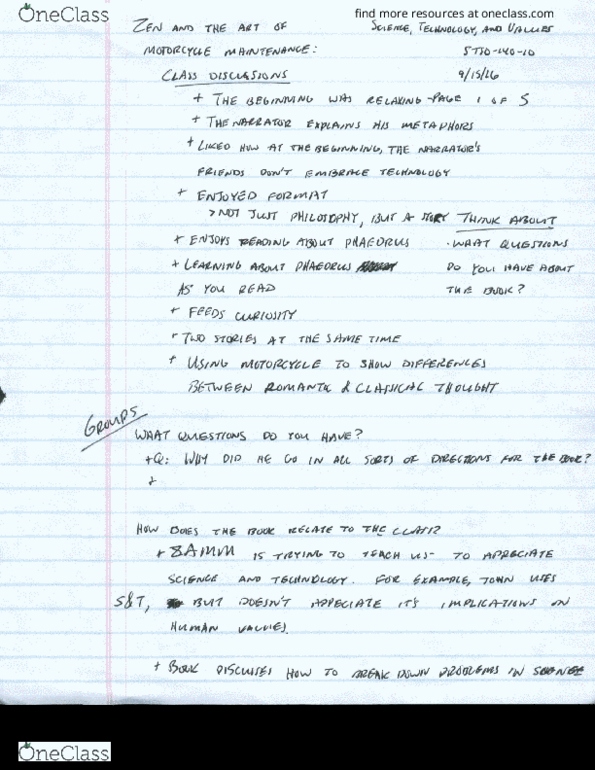 OneClass
find more resources at oneclass.com
ZEN AND THE ART OF
SCIENCE, TECHNOLOGY, AND VALUES
MOTORCYCLE MAINTENANCE:
STSO-140-10
CLASS DISCUSSIONS
9/15/16
+ THE BEGINNING WAS RELAXING-PAGE 1 OF 5
+ THE NARRATOR EXPLAINS HIS METAPHORS
+ LIKED HOW AT THE BEGINNING, THE NARRATOR'S
FRIENDS DON'T EMBRACE TECHNOLOGY
+ ENJOYED FORMAT
> NOT JUST PHILOSOPHY, BUT A STORY
THINK ABOUT
+ ENJOYS READING ABOUT PHAEDRUS
· WHAT QUESTIONS
+ LEARNING ABOUT PHAEDRUS
DO YOU HAVE ABOUT
AS YOU READ
THE BOOK?
+ FEEDS CURIOSITY
+ TWO STORIES AT THE SAME TIME
+ USING MOTORCYCLE TO SHOW DIFFERENCES
BETWEEN ROMANTIC & CLASSICAL THOUGHT
GROUPS
WHAT QUESTIONS DO YOU HAVE?
+Q: WHY DID HE GO IN ALL SORTS OF DIRECTIONS FOR THE BOOK?
+
HOW DOES THE BOOK RELATE TO THE CLASS?
+ ZAMM IS TRYING TO TEACH US- TO APRECIATE
SCIENCE AND TECHNOLOGY. FOR EXAMPLE, TOWN USES
S&T, BUT DOESN'T APPECIATE IT'S IMPLICATIONS ON
HUMAN VALUES.
+ BOOK DISCUSES HOW TO BREAK DOWN PROBLEMS IN
OneClass